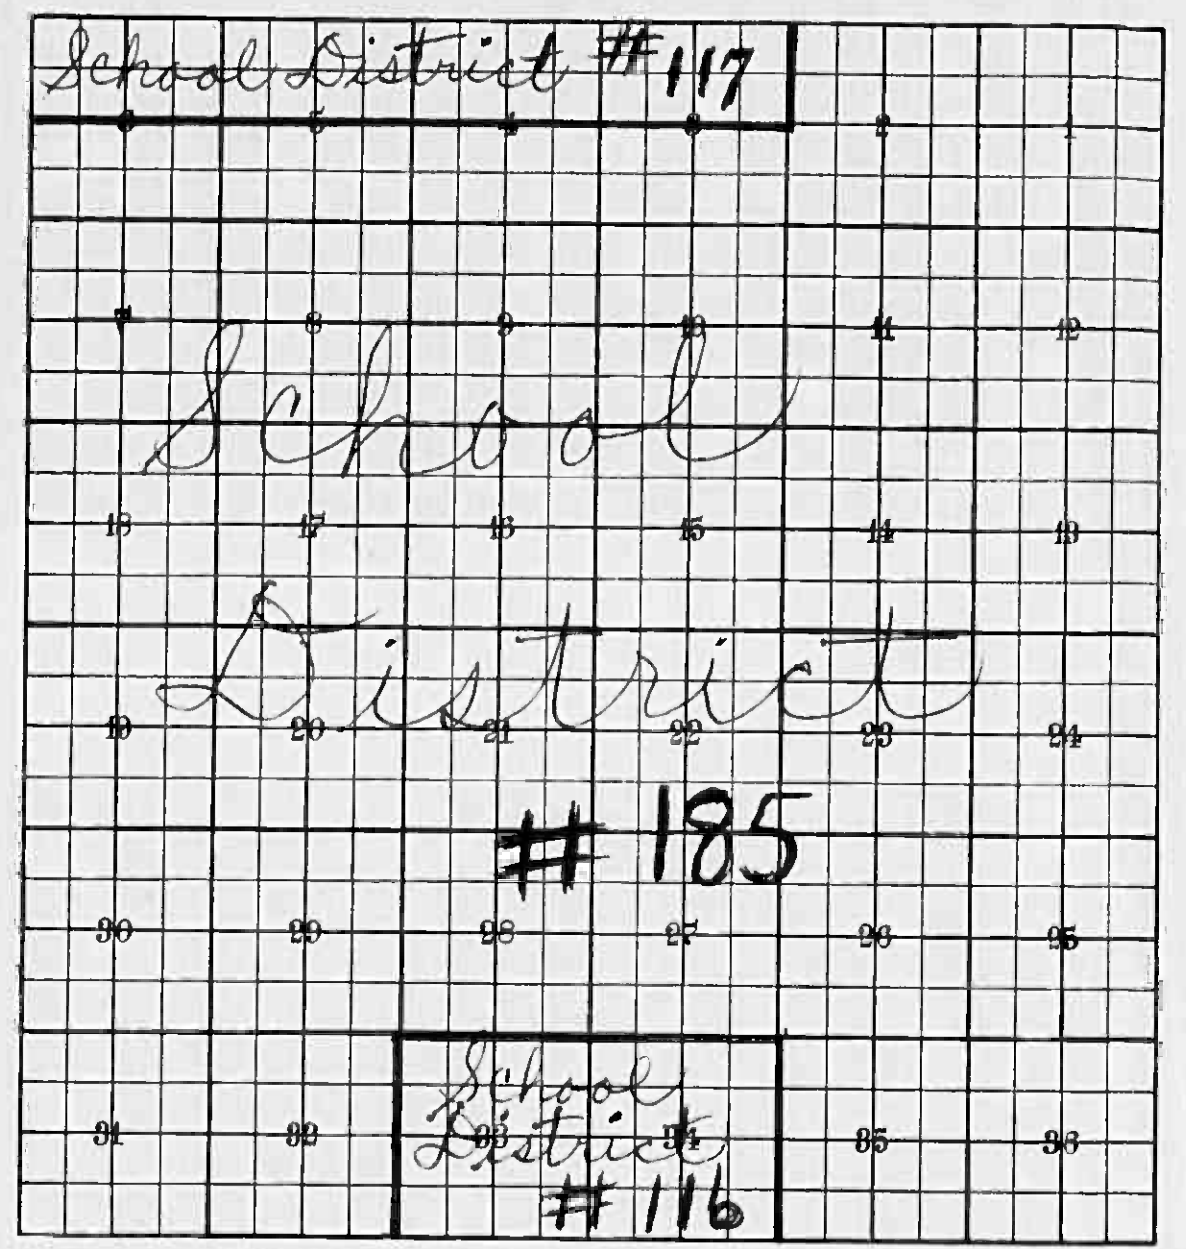 School District # 117
6 5 4 3 2 1
7 8 9 10 11 12
School
18 17 16 15 14 13
District
19 20 21 22 23 24
# 185
30 29 28 27 26 25
School
31 32 33 34 35 36
District
# 116